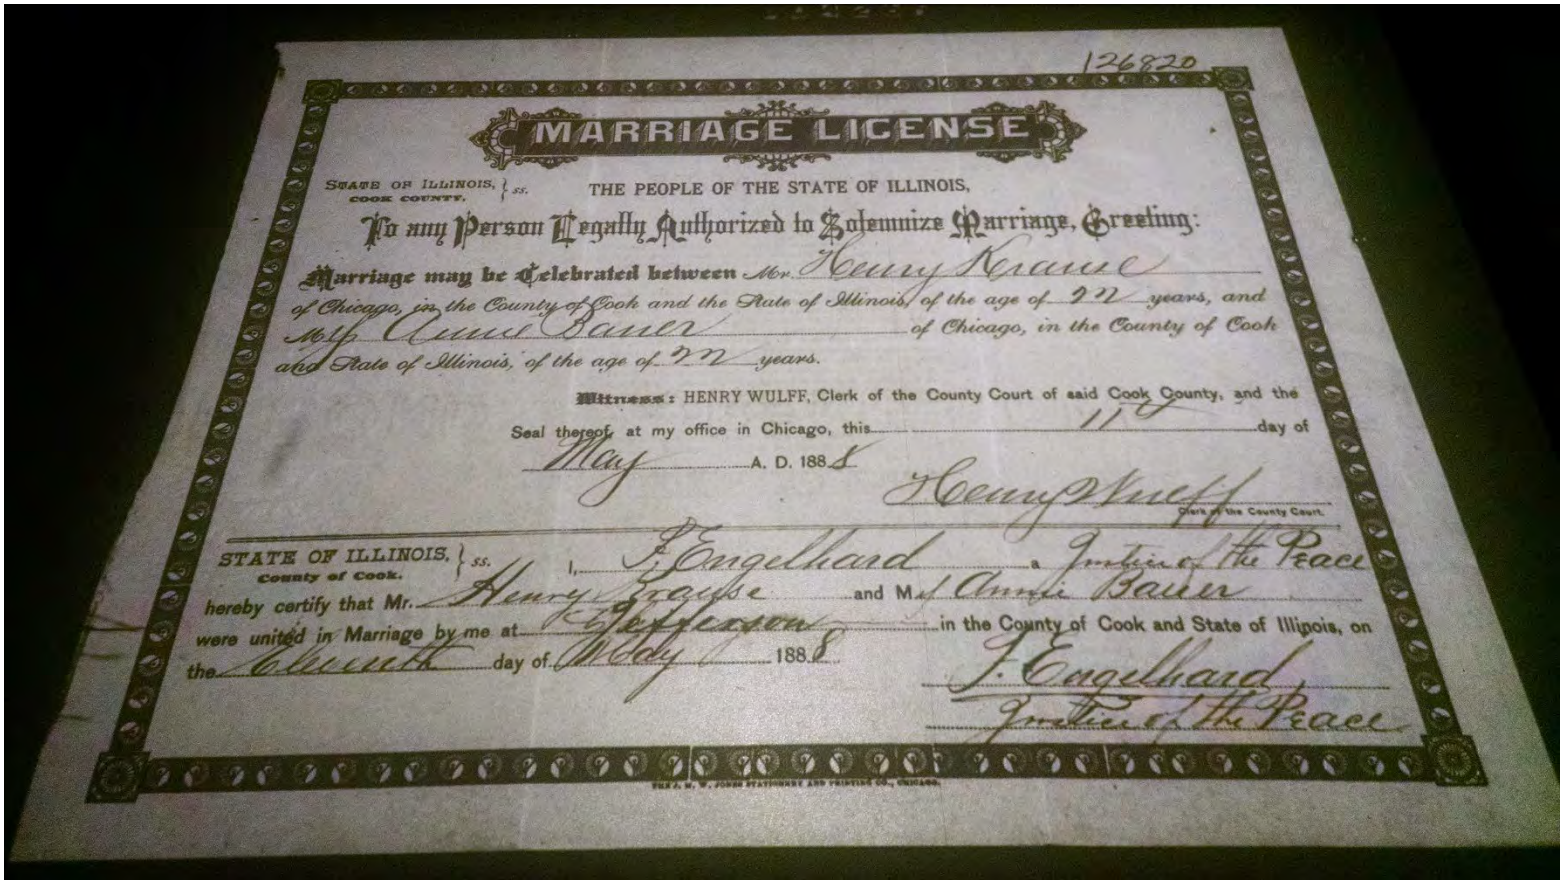 126820
MARRIAGE LICENSE
STATE OF ILLINOIS, } ss. THE PEOPLE OF THE STATE OF ILLINOIS,
COOK COUNTY.
To any Person Legally Authorized to Solemnize Marriage, Greeting:
Marriage may be Celebrated between Mr. Henry Krause
of Chicago, in the County of Cook and the State of Illinois, of the age of years, and
Annie Bauer of Chicago, in the County of Cook
and State of Illinois, of the age of years.
Witness: HENRY WULFF, Clerk of the County Court of said Cook County, and the
Seal thereof, at my office in Chicago, this 11th day of
May A. D. 1888
Henry Wulff
Clerk of the County Court.
STATE OF ILLINOIS, } ss. I, F. Engelhard a Justice of the Peace
County of Cook.
hereby certify that Mr. Henry Krause and M Annie Bauer
were united in Marriage by me at Jefferson in the County of Cook and State of Illinois, on
the Eleventh day of May 1888
F. Engelhard
Justice of the Peace
THE J. M. W. JONES STATIONERY AND PRINTING CO., CHICAGO.